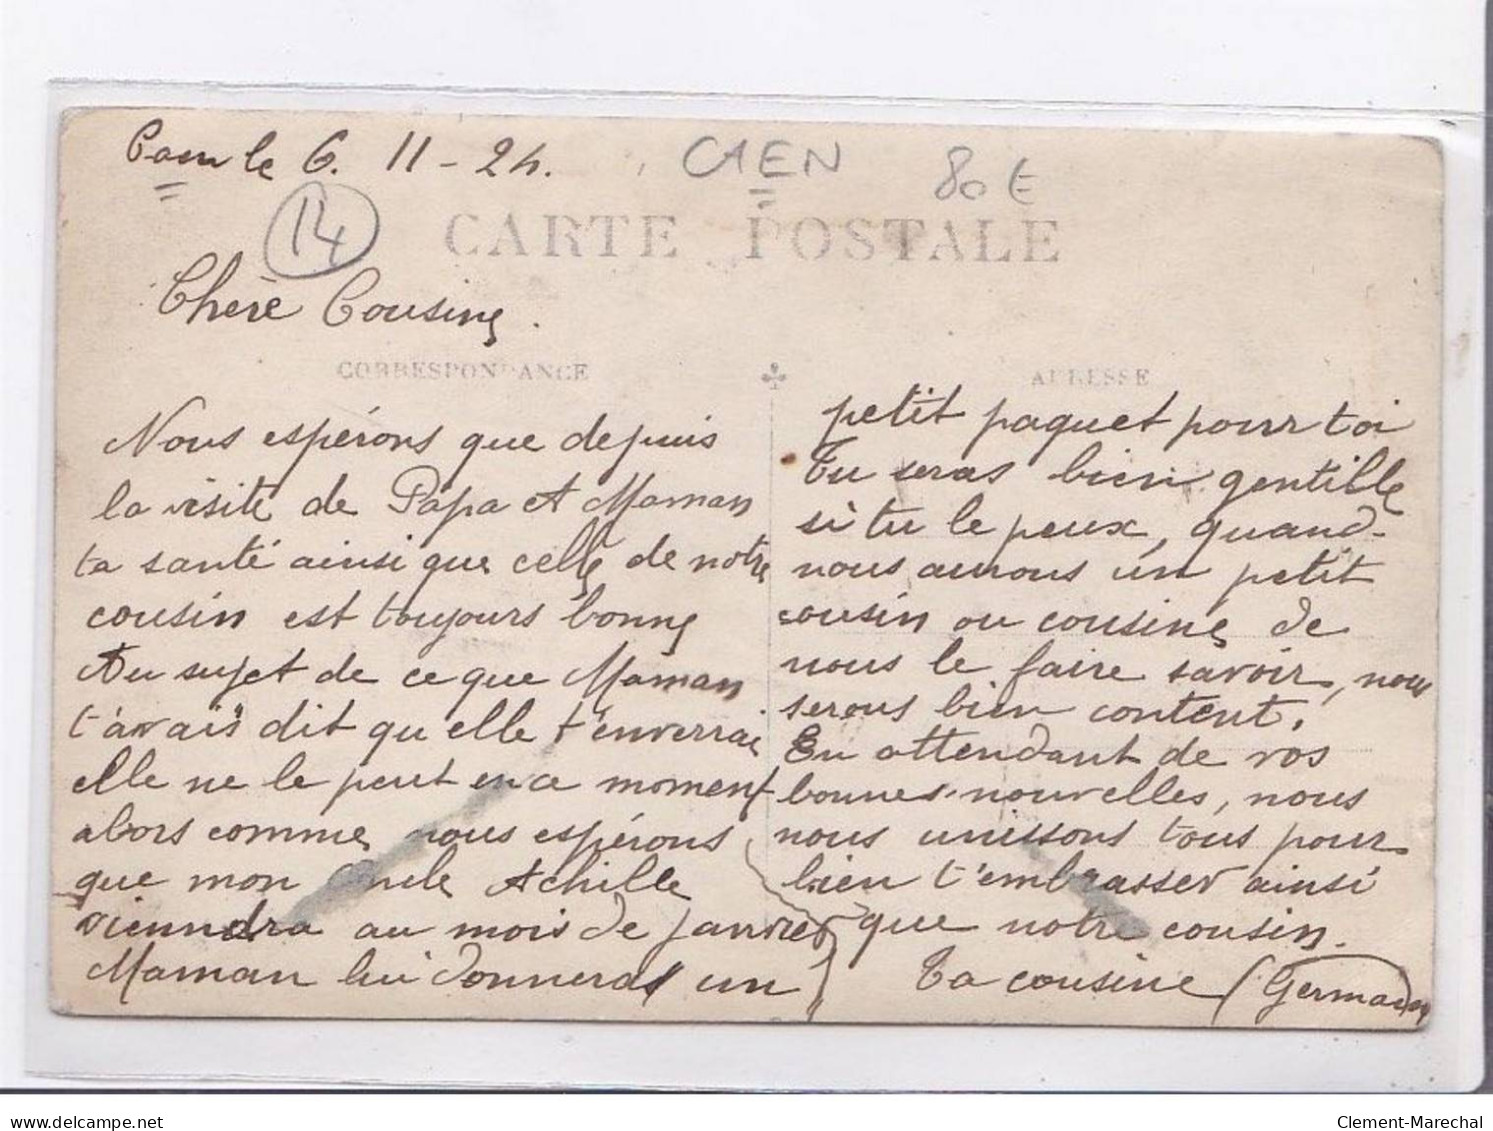 Caen le 6. 11 - 24.
CAEN
80€
14
CARTE POSTALE
Chère Cousine.
CORRESPONDANCE
ADRESSE
Nous espérons que depuis
la visite de Papa et Maman
ta santé ainsi que celle de notre
cousin est toujours bonne
Au sujet de ce que Maman
t'avais dit qu elle t'enverrai
elle ne le peut en ce moment
alors comme nous espérons
que mon Oncle Achille
viendra au mois de janvier
Maman lui donneras un
petit paquet pour toi
Tu seras bien gentille
si tu le peux, quand
nous aurons un petit
cousin ou cousine de
nous le faire savoir, nous
serons bien content.
En attendant de vos
bonnes nouvelles, nous
nous unissons tous pour
bien t'embrasser ainsi
que notre cousin.
Ta cousine Germaine
delcampe.net
Clement-Marechal